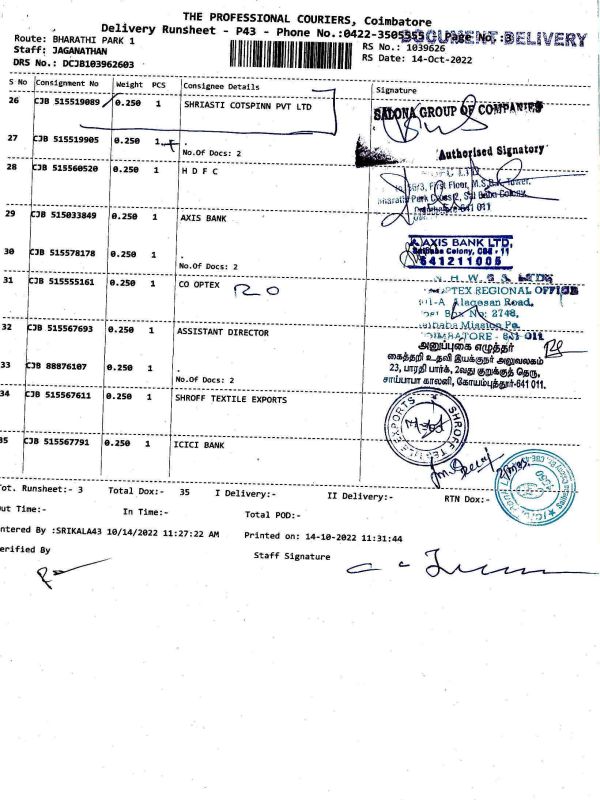 THE PROFESSIONAL COURIERS, Coimbatore
Delivery Runsheet - P43 - Phone No.:0422-3505355 Page No.:3
DOCUMENT DELIVERY
Route: BHARATHI PARK 1
RS No.: 1039626
Staff: JAGANATHAN
RS Date: 14-Oct-2022
DRS No.: DCJB103962603
S No Consignment No Weight PCS Consignee Details Signature
26 CJB 515519089 0.250 1 SHRIASTI COTSPINN PVT LTD
SALONA GROUP OF COMPANIES
27 CJB 515519905 0.250 1 .
No.Of Docs: 2
Authorised Signatory
28 CJB 515560520 0.250 1 H D F C
First Floor, M.S.R.K. Tower,
Sai Baba Colony,
641 011
29 CJB 515033849 0.250 1 AXIS BANK
AXIS BANK LTD,
SaiBaba Colony, CBE - 11
641211005
30 CJB 515578178 0.250 1 .
No.Of Docs: 2
31 CJB 515555161 0.250 1 CO OPTEX
RO
OPTEX REGIONAL OFFICE
Alagesan Road,
Box No: 2748,
Mission Po.
COIMBATORE - 641 011
32 CJB 515567693 0.250 1 ASSISTANT DIRECTOR
அனுப்புகை எழுத்தர்
கைத்தறி உதவி இயக்குநர் அலுவலகம்
23, பாரதி பார்க், 2வது குறுக்குத் தெரு,
சாய்பாபா காலனி, கோயம்புத்தூர்-641 011.
33 CJB 88876107 0.250 1 .
No.Of Docs: 2
34 CJB 515567611 0.250 1 SHROFF TEXTILE EXPORTS
SHROFF TEXTILE EXPORTS
35 CJB 515567791 0.250 1 ICICI BANK
Tot. Runsheet:- 3 Total Dox:- 35 I Delivery:- II Delivery:- RTN Dox:-
Out Time:- In Time:- Total POD:-
Entered By :SRIKALA43 10/14/2022 11:27:22 AM Printed on: 14-10-2022 11:31:44
Verified By Staff Signature